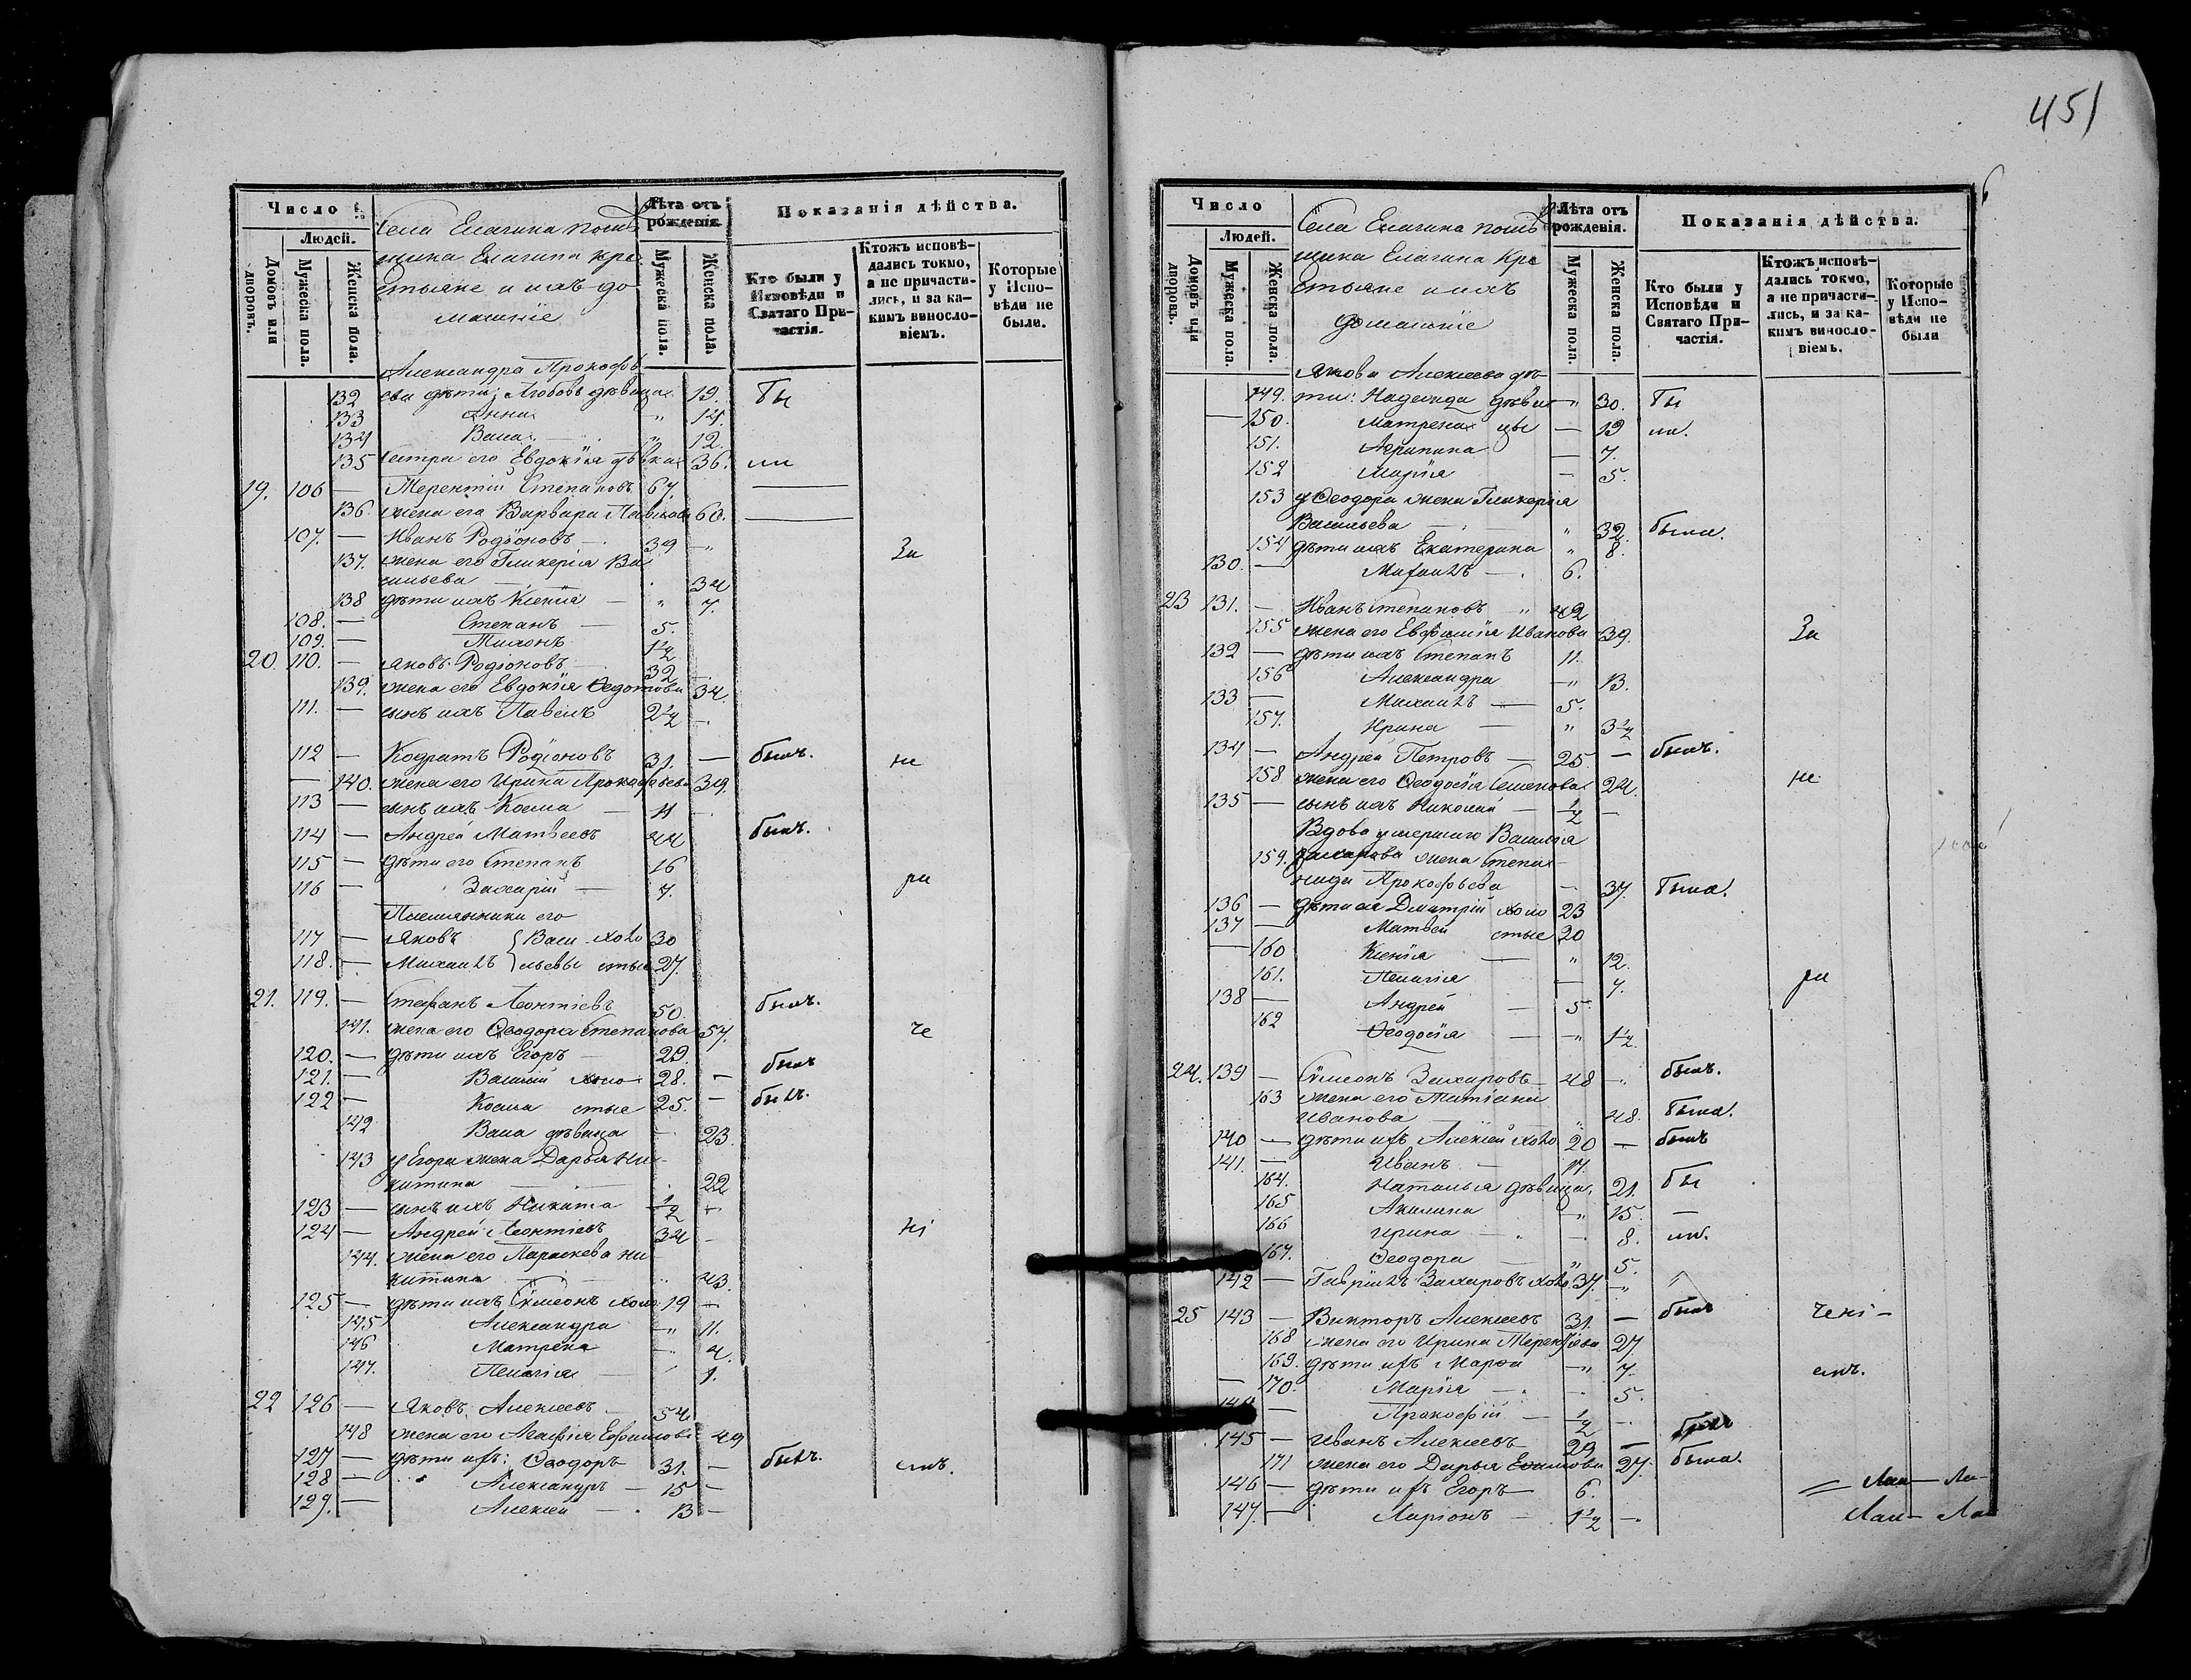 451
Число
Людей.
Домовъ или дворовъ.
Мужеска пола.
Женска пола.
Села Елагина помѣ
щика Елагина кре
стьяне и ихъ до
машніе
Лѣта отъ рожденія.
Мужеска пола.
Женска пола.
Показанія дѣйства.
Кто были у Исповѣди и Святаго При- частія.
Ктожъ исповѣ- дались токмо, а не причасти- лись, и за ка- кимъ винословіемъ.
Которые у Испо- вѣди не были.
Александра Прокофь
132 ева дѣти: Любовь дѣвица 19. Бы
133 Анна " 14.
134 Васса " 12.
135 Сестра его Евдокія дѣвка 36. ли
19. 106 — Терентій Степановъ 67. —
136. жена его Варвара Павлова 60. —
107. — Иванъ Родіоновъ — 39 — За
137. жена его Гликерія Ва
сильева 34
138 дѣти ихъ Ксенія — " 7.
108. — Степанъ — 5.
109. — Тихонъ 1 1/2
20. 110. — Яковъ Родіоновъ — 32
139. жена его Евдокія Ѳедотова 34.
111. — сынъ ихъ Павелъ 2 1/2 —
112 — Кодратъ Родіоновъ 31. — былъ. не
— 140. жена его Ирина Прокофьева 39.
113 — сынъ ихъ Косма — 11 —
114 — Андрей Матвеевъ 44 былъ.
115 — дѣти его Степанъ 16
116 — Захарій — 7. ра
Племянники его
117 — Яковъ { Васи- холо 30
118. — Михаилъ { льевы стые 27.
21. 119. — Стефанъ Леонтіевъ 50. былъ.
141. жена его Ѳеодора Степанова 57. че
120. — дѣти ихъ Егоръ — 29. былъ
121. — Василій холо 28. —
122 — Косма стые 25. — былъ.
142 Васса дѣвица — 23.
143 у Егора жена Дарья Ни-
китина — 22
123 — сынъ ихъ Никита 1/2 —
124 — Андрей Леонтіевъ 34 — ні
144. жена его Параскева Ни
китина — 43.
125 — дѣти ихъ Сѵмеонъ холо 19 —
145 Александра — " 11.
146 Матрена — 4.
147. Пелагія — 1.
22 126 — Яковъ Алексеевъ 54
148 жена его Агафія Ефимова 49
127 — дѣти ихъ: Ѳеодоръ 31. — былъ. емъ.
128 — Александръ — 15 —
129. — Алексей — 13 —
Число
Людей.
Домовъ или дворовъ.
Мужеска пола.
Женска пола.
Села Елагина помѣ
щика Елагина кре
стьяне и ихъ
домашніе
Лѣта отъ рожденія.
Мужеска пола.
Женска пола.
Показанія дѣйства.
Кто были у Исповѣди и Святаго При- частія.
Ктожъ исповѣ- дались токмо, а не причасти- лись, и за ка- кимъ винословіемъ.
Которые у Испо- вѣди не были
Якова Алексеева дѣ-
149. ти: Надежда дѣви — " 30. Бы
— 150. Матрена цы — 19 ли.
151. Агрипина — 7.
152 Марія — 5.
153 у Ѳеодора жена Гликерія
Васильева — " 32. была.
154 дѣти ихъ Екатерина " 8.
130. — Михаилъ — 6.
23 131. — Иванъ Степановъ — " 42
155 жена его Евфимія Иванова 39. За
132 — дѣти ихъ Степанъ 11.
156 Александра — " 13.
133 — Михаилъ — 5.
157. Ирина — " 3 1/2
134 — Андрей Петровъ — 25 — былъ.
158 жена его Ѳеодосія Семенова 24. не
135 — сынъ ихъ Николай — 1/2 —
Вдова умершаго Василія
159. Захарова жена Степа-
нида Прокофьева — 37. Была.
136 — дѣти ея Дмитрій холо 23
137 — Матвей стые 20
— 160 Ксенія — " 12.
161. Пелагія — 7. ра
138 — Андрей — 5
162 Ѳеодосія — " 1 1/2.
24. 139 — Сѵмеонъ Захаровъ — 48 — былъ.
163 жена его Татіана
Иванова — " 48. Была.
140 — дѣти ихъ Алексей холо 20 — былъ
141. — Иванъ — 17.
164. Наталья дѣвица. 21. бы
165 Акилина — " 15. —
166 Ирина — 8. ли.
167. Ѳеодора — " 5.
142 — Гавріилъ Захаровъ холо 37. — "
25 143 — Викторъ Алексеевъ 31. — былъ чені-
168 жена его Ирина Терентіева 27
169. дѣти ихъ Марѳа — " 7. емъ.
— 170. Марія — 5.
144 — Прокофій — 1/2 —
145 — Иванъ Алексеевъ 29 — былъ
171 жена его Дарья Ефимова 27. была.
146 — дѣти ихъ Егоръ — 6.
147. — Ларіонъ — 1 1/2 —